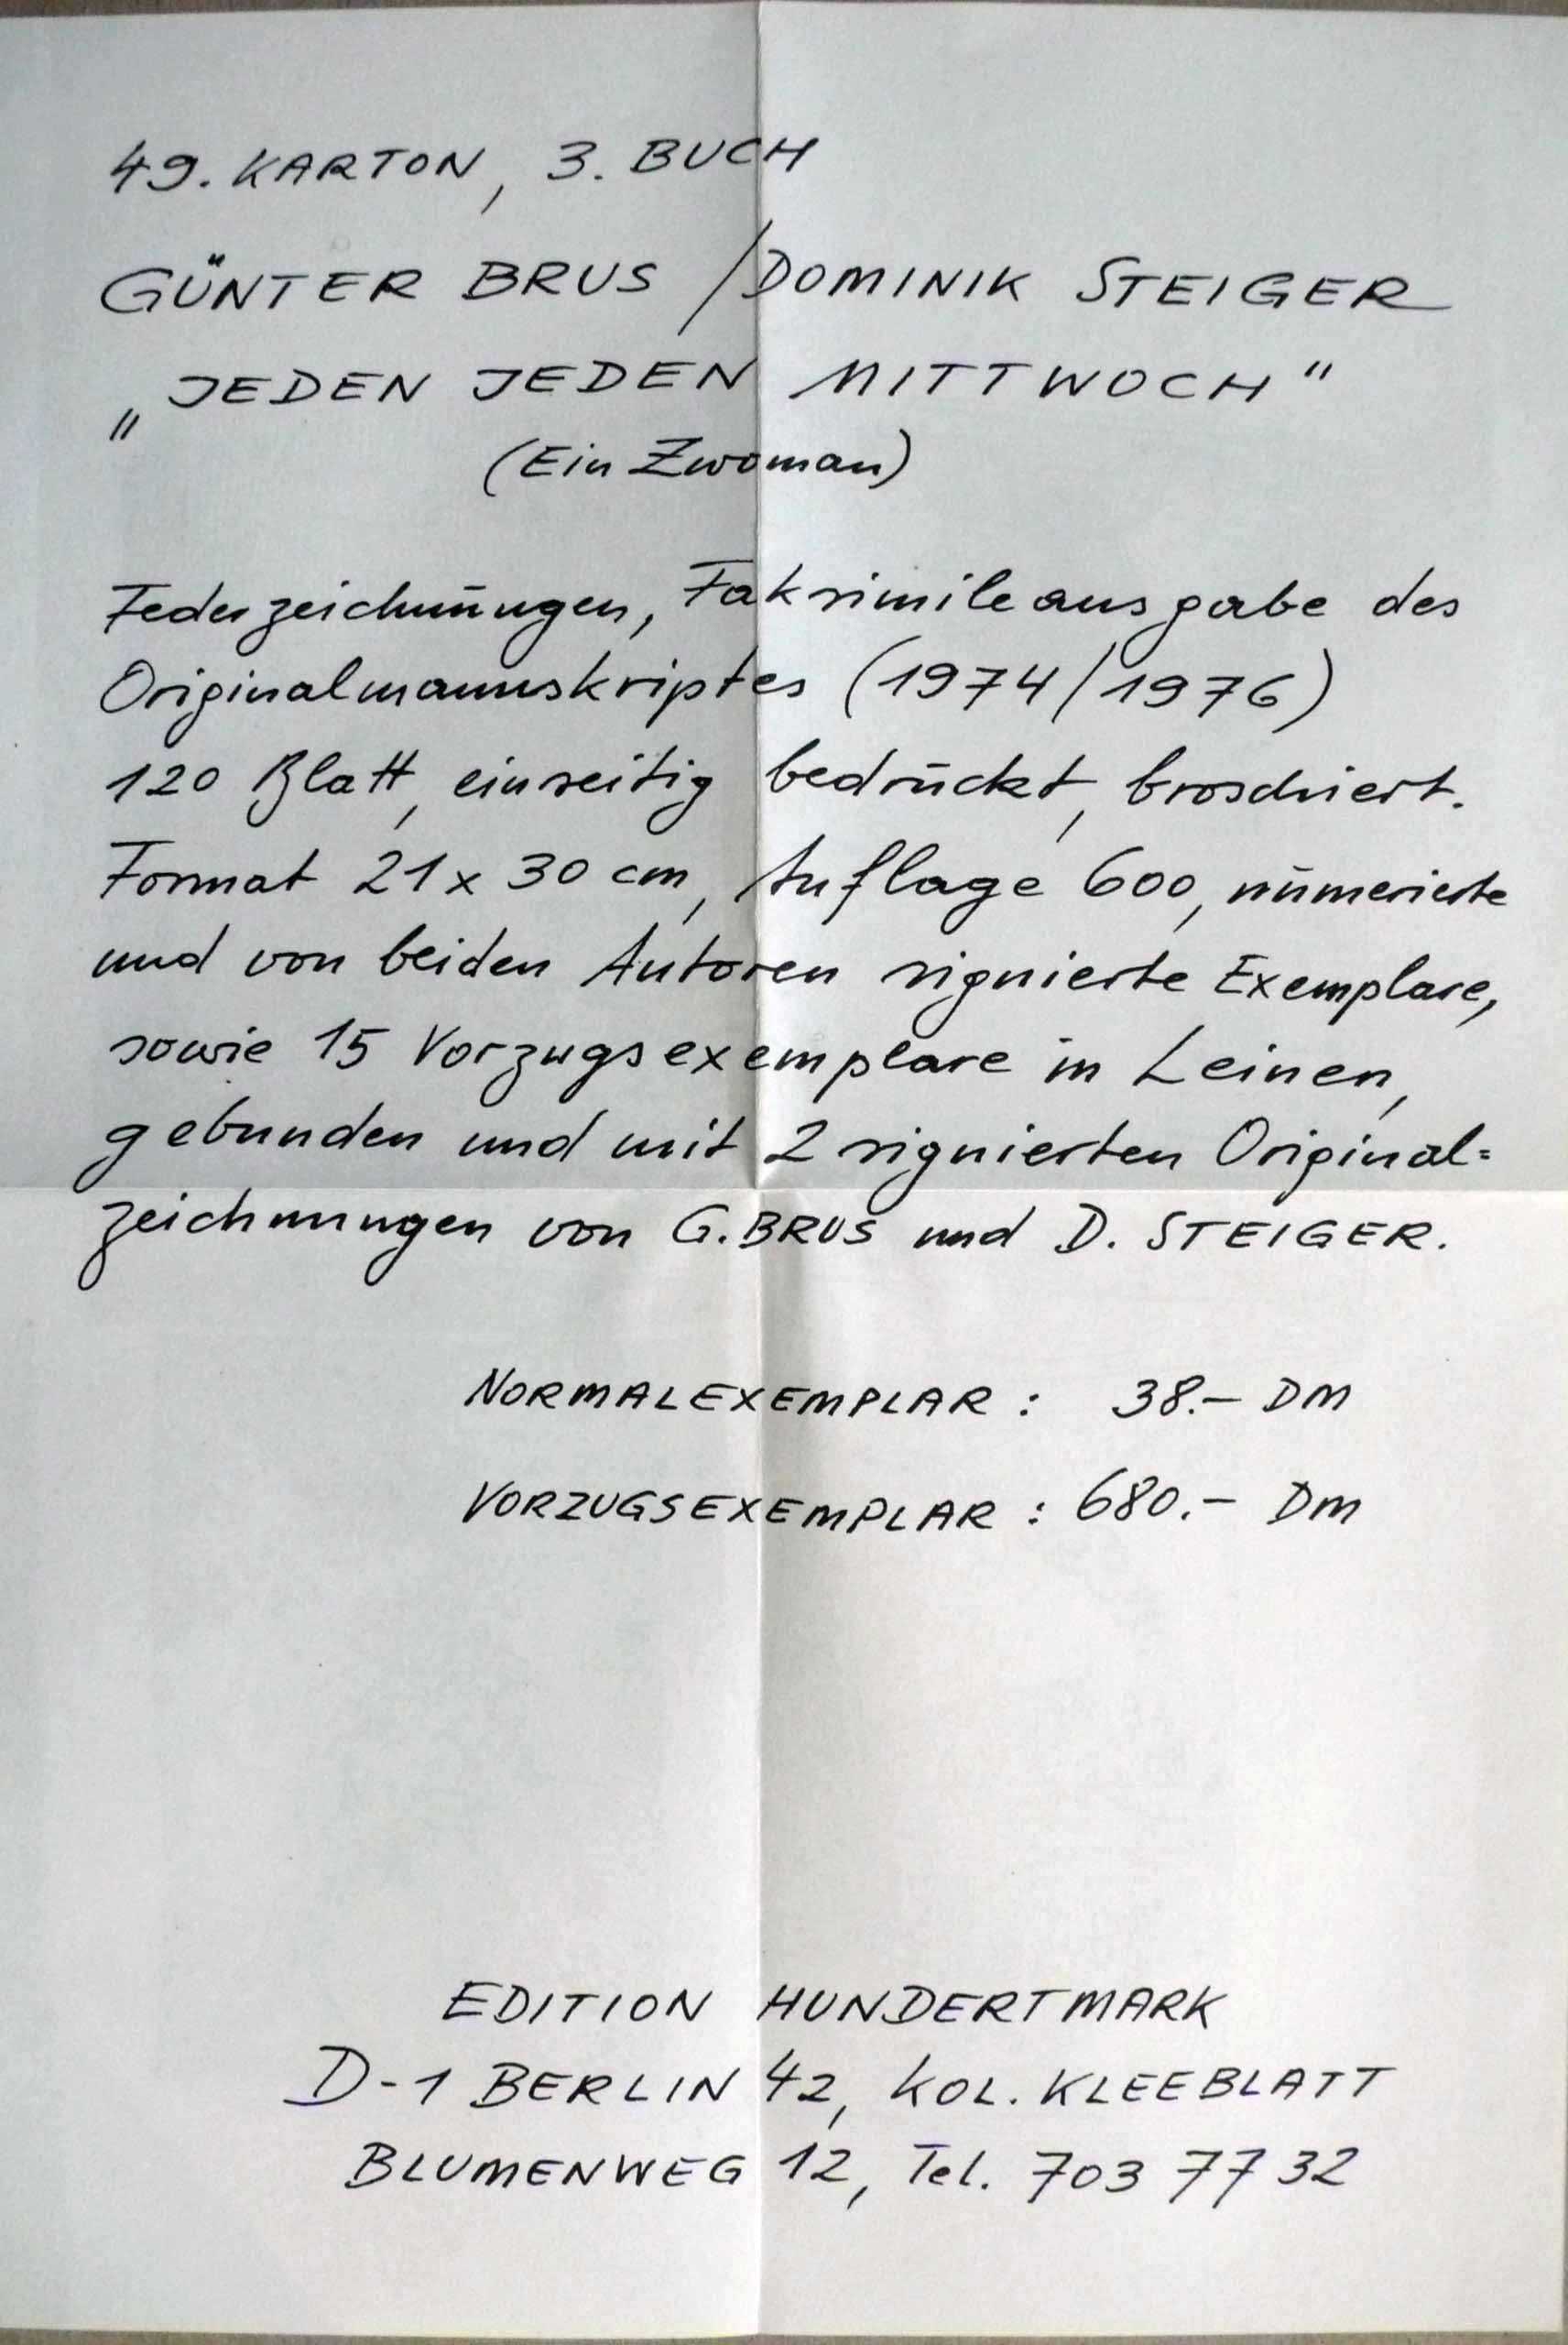 49. KARTON, 3. BUCH
GÜNTER BRUS / DOMINIK STEIGER
„JEDEN JEDEN MITTWOCH"
(Ein Zwoman)
Federzeichnungen, Faksimileausgabe des
Originalmanuskriptes (1974/1976)
120 Blatt, einseitig bedruckt, broschiert.
Format 21 x 30 cm, Auflage 600, numerierte
und von beiden Autoren signierte Exemplare,
sowie 15 Vorzugsexemplare in Leinen,
gebunden und mit 2 signierten Original=
zeichnungen von G. BRUS und D. STEIGER.
NORMALEXEMPLAR : 38.– DM
VORZUGSEXEMPLAR : 680.– DM
EDITION HUNDERTMARK
D-1 BERLIN 42, KOL. KLEEBLATT
BLUMENWEG 12, Tel. 703 77 32